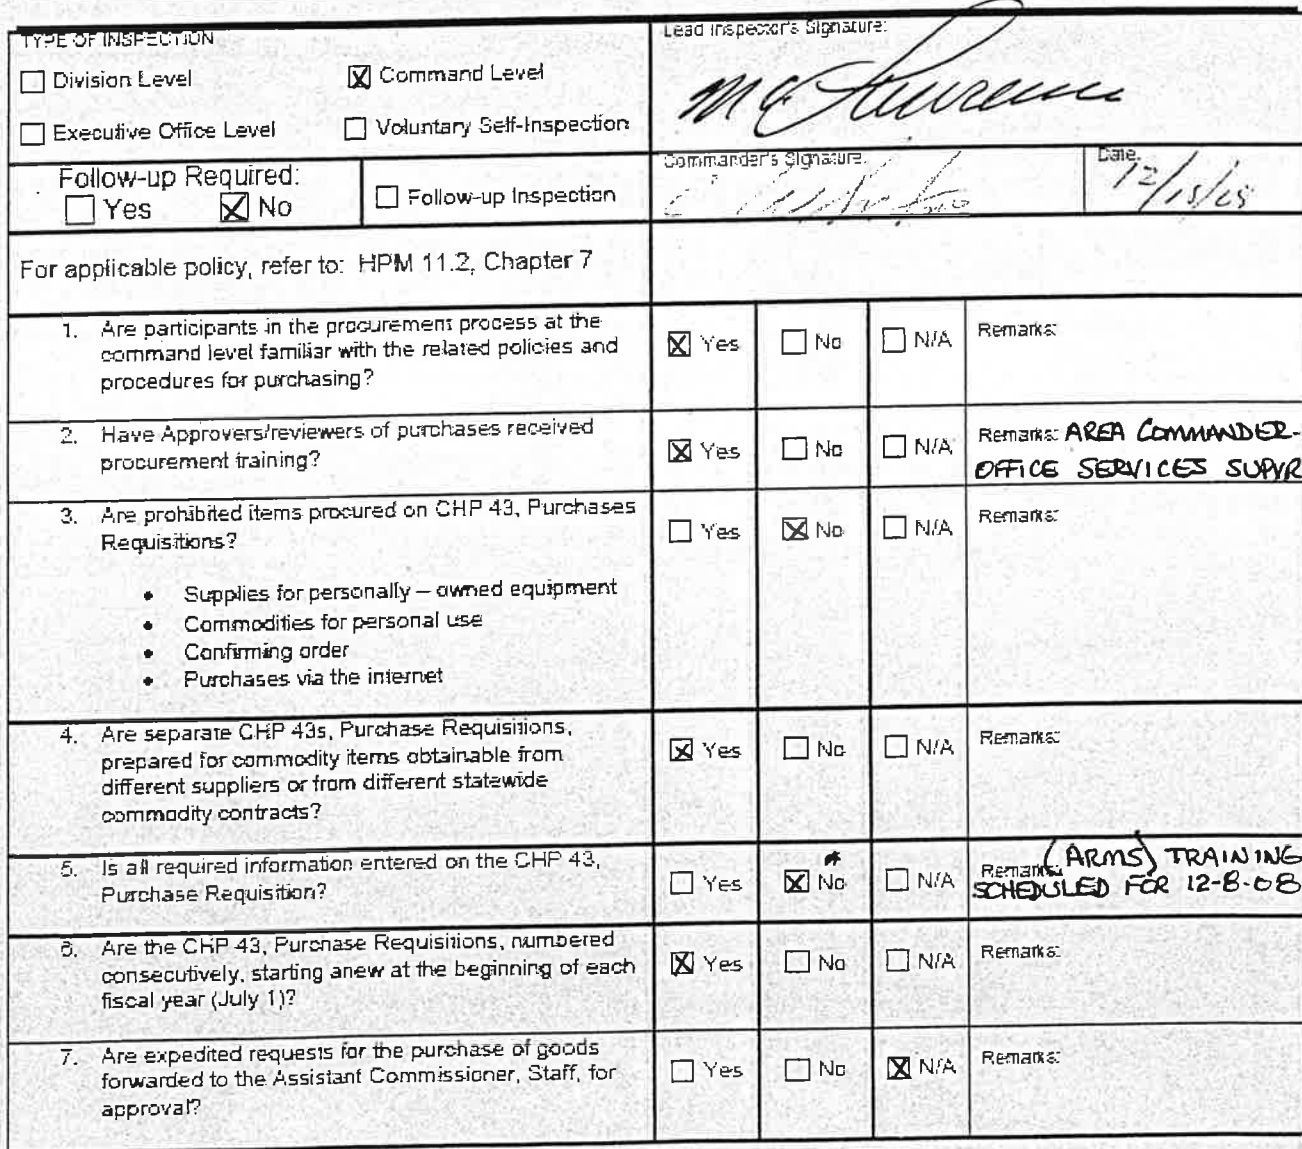 TYPE OF INSPECTION
☐ Division Level
☒ Command Level
☐ Executive Office Level
☐ Voluntary Self-Inspection
Lead Inspector's Signature:
Follow-up Required:
☐ Yes ☒ No
☐ Follow-up Inspection
Commander's Signature:
Date:
For applicable policy, refer to: HPM 11.2, Chapter 7
1. Are participants in the procurement process at the
command level familiar with the related policies and
procedures for purchasing?
☒ Yes ☐ No ☐ N/A Remarks:
2. Have Approvers/reviewers of purchases received
procurement training?
☒ Yes ☐ No ☐ N/A Remarks: AREA COMMANDER-
OFFICE SERVICES SUPVR
3. Are prohibited items procured on CHP 43, Purchases
Requisitions?
• Supplies for personally – owned equipment
• Commodities for personal use
• Confirming order
• Purchases via the internet
☐ Yes ☒ No ☐ N/A Remarks:
4. Are separate CHP 43s, Purchase Requisitions,
prepared for commodity items obtainable from
different suppliers or from different statewide
commodity contracts?
☒ Yes ☐ No ☐ N/A Remarks:
5. Is all required information entered on the CHP 43,
Purchase Requisition?
☐ Yes ☒ No ☐ N/A Remarks: (ARMS) TRAINING
SCHEDULED FOR 12-8-08
6. Are the CHP 43, Purchase Requisitions, numbered
consecutively, starting anew at the beginning of each
fiscal year (July 1)?
☒ Yes ☐ No ☐ N/A Remarks:
7. Are expedited requests for the purchase of goods
forwarded to the Assistant Commissioner, Staff, for
approval?
☐ Yes ☐ No ☒ N/A Remarks: